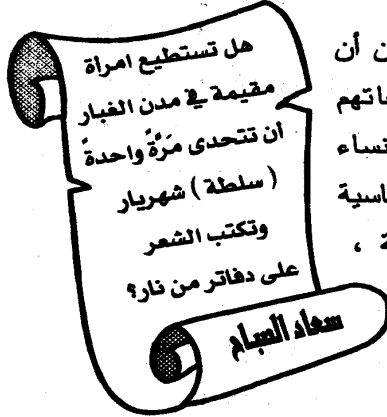 هل تستطيع امرأة
مقيمة في مدن الغبار
أن تتحدى مَرَّةً واحدةً
( سلطة ) شهريار
وتكتب الشعر
على دفاتر من نار؟
سعاد الصباح
ن أن
اتهم
نساء
اسية
ة ،